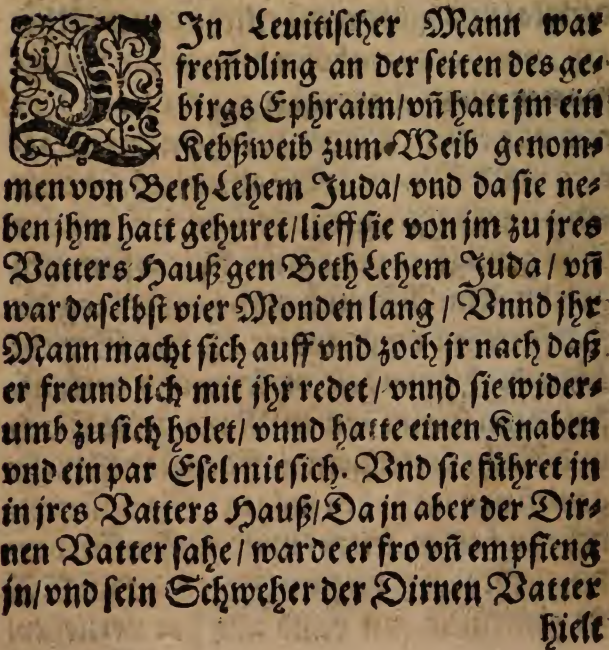 EIn Leuitiſcher Mann war
frem̃dling an der ſeiten des ge⸗
birgs Ephraim/vñ hatt jm ein
Kebßweib zum Weib genom⸗
men von Beth Lehem Juda/ vnd da ſie ne⸗
ben jhm hatt gehuret/lieff ſie von jm zu jres
Vatters Hauß gen Beth Lehem Juda / vñ
war daſelbſt vier Monden lang / Vnnd jhr
Mann macht ſich auff vnd zoch jr nach daß
er freundlich mit jhr redet / vnnd ſie wider⸗
umb zu ſich holet/ vnnd hatte einen Knaben
vnd ein par Eſel mit ſich. Vnd ſie führet jn
in jres Vatters Hauß/Da jn aber der Dir⸗
nen Vatter ſahe / warde er fro vñ empfieng
jn/vnd ſein Schweher der Dirnen Vatter
hielt